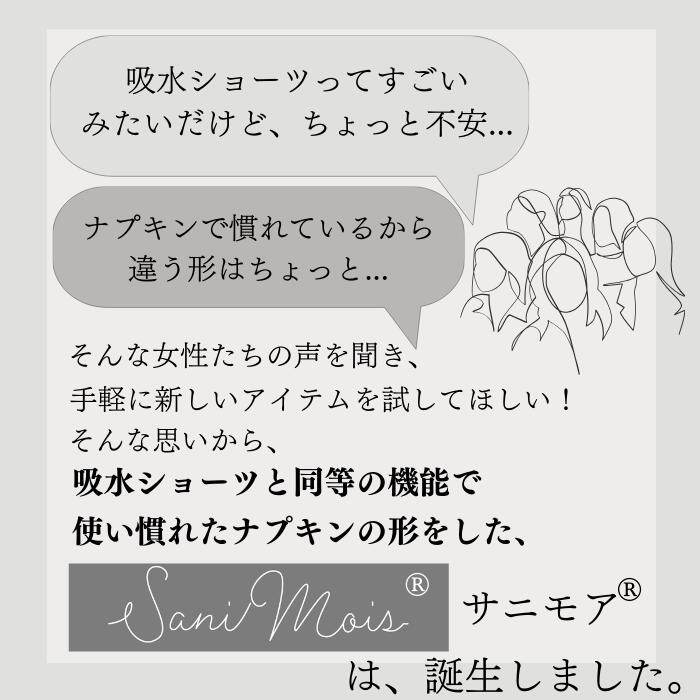 吸水ショーツってすごい
みたいだけど、ちょっと不安...
ナプキンで慣れているから
違う形はちょっと...
そんな女性たちの声を聞き、
手軽に新しいアイテムを試してほしい！
そんな思いから、
吸水ショーツと同等の機能で
使い慣れたナプキンの形をした、
Sani Mois® サニモア®
は、誕生しました。